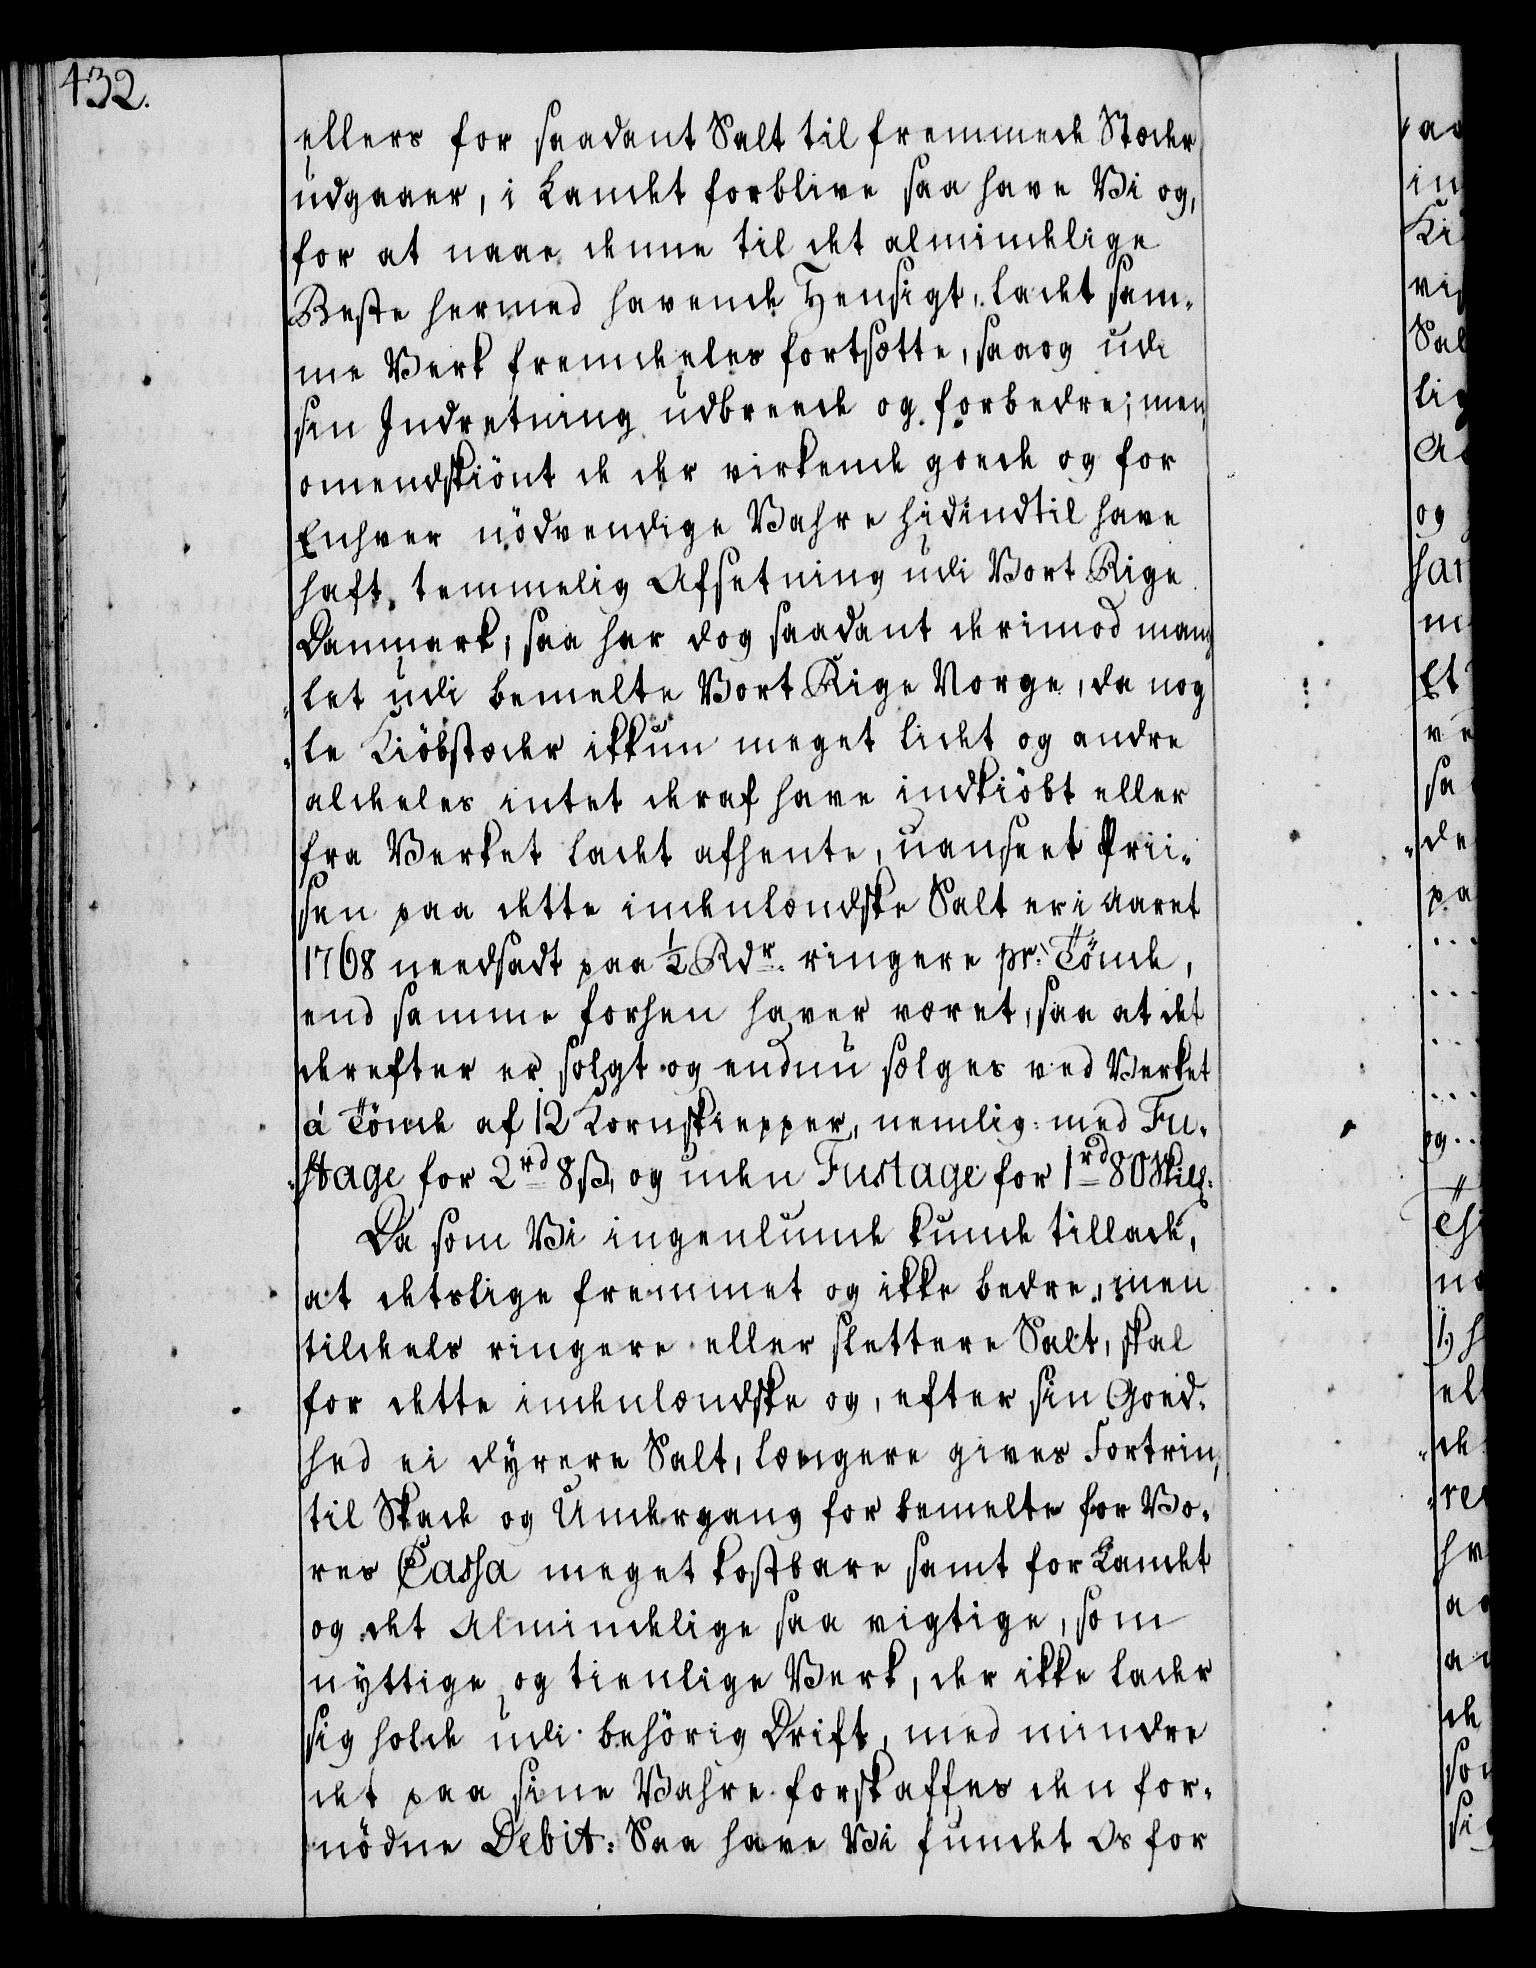 432.
ellers for saadant Salt til fremmede Stæder
udgaaer, i Landet forblive saa have Vi og,
for at naae denne til det almindelige
Beste hermed havende Hensigt, ladet sam-
me Verk fremdeeles fortsætte, saaog udi
sin Indretning udbreede og forbedre; men,
omendskiönt de der virkende goede og for
Enhver nödvendige Vahre hidindtil have
haft temmelig Afsetning udi Vort Rige
Danmark; saa har dog saadant derimod mang
let udi bemelte Vort Rige Norge, da nog
le Kiöbstæder ikkun meget lidet og andre
aldeeles intet deraf have indkiöbt eller
fra Verket ladet afhente, uanseet Prii-
sen paa dette indenlændske Salt er i Aaret
1768 needsadt paa ½ Rdr. ringere pr. Tönde,
end samme forhen haver været, saa at det
derefter er solgt og endnu sælges ved Verket
á Tönde af 12 Kornskiepper, nemlig: med Fu-
stage for 2rd 8 ß, og uden Fustage for 1rd 80 Skill:
Da som Vi ingenlunde kunde tillade,
at detslige fremmet og ikke bedre, men
tildeels ringere eller slettere Salt, skal
for dette indenlændske og, efter sin Goed-
hed ei dÿrere Salt, længere gives Fortrin,
til Skade og Undergang for bemelte for Vo-
res Cassa meget kostbare samt for Landet
og det Almindelige saa vigtige, som
nÿttige og tienlige Verk, der ikke lader
sig holde udi behörig Drift, med mindre
det paa sine Vahre forskaffes den for-
nödne Debit: Saa have Vi fundet Os for